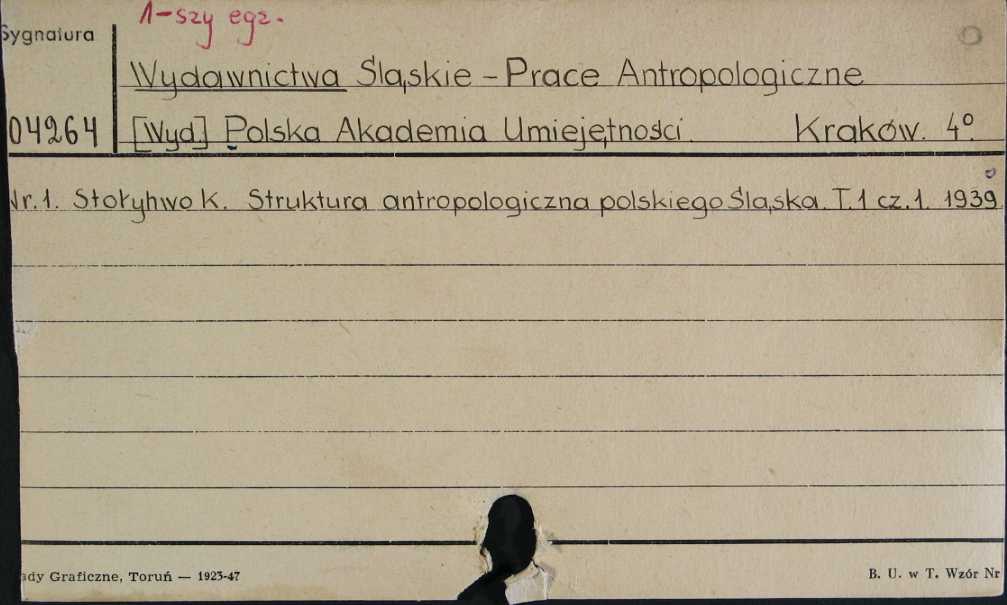 1-szy egz.
Sygnatura
Wydawnictwa Śląskie - Prace Antropologiczne
04264 [Wyd] Polska Akademia Umiejętności. Kraków. 4º
Nr. 1. Stołyhwo K. Struktura antropologiczna polskiego Śląska. T. 1 cz. 1. 1939
ady Graficzne, Toruń — 1923-47 B. U. w T. Wzór Nr